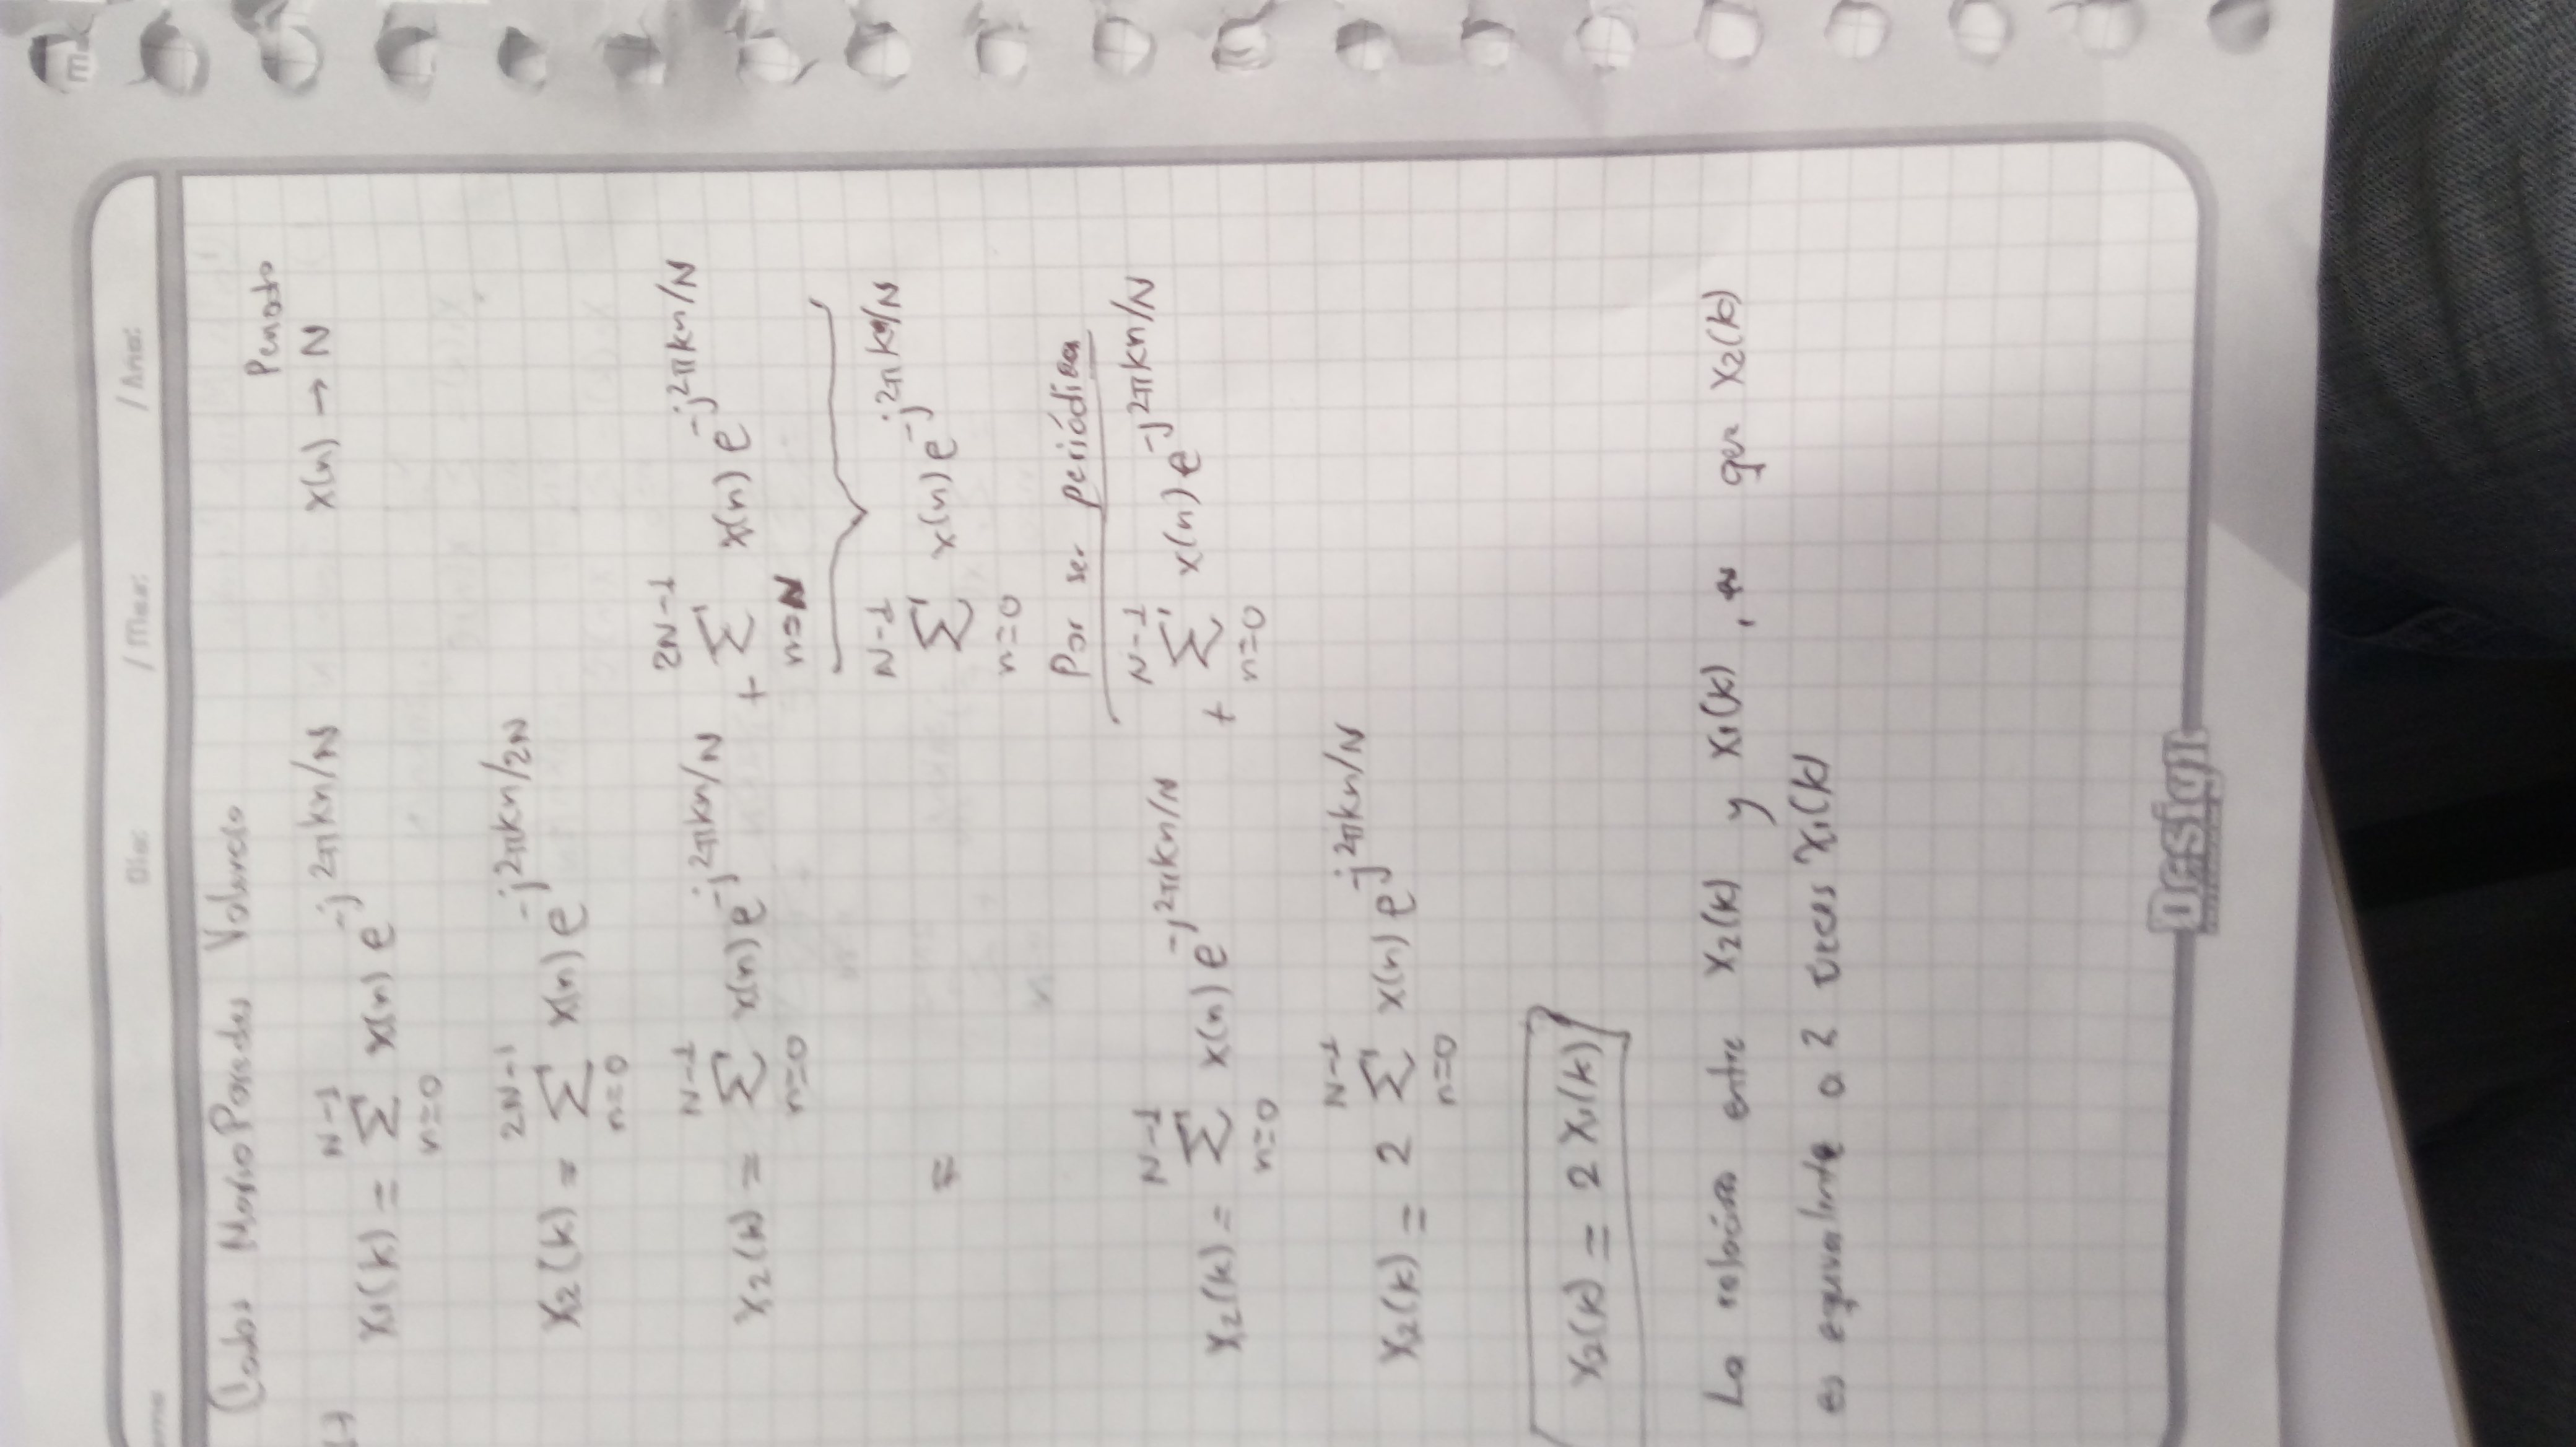 Día: / Mes: / Año:
Carlos Mario Paredes Valencia
Periodo
1-) X₁(k) = N-1 Σ n=0 x(n) e^-j2πkn/N x(n) → N
X₂(k) = 2N-1 Σ n=0 x(n) e^-j2πkn/2N
X₂(k) = N-1 Σ n=0 x(n) e^-j2πkn/N + 2N-1 Σ n=N x(n) e^-j2πkn/N
= N-1 Σ n=0 x(n) e^-j2πkn/N
Por ser periódica
X₂(k) = N-1 Σ n=0 x(n) e^-j2πkn/N + N-1 Σ n=0 x(n) e^-j2πkn/N
X₂(k) = 2 N-1 Σ n=0 x(n) e^-j2πkn/N
X₂(k) = 2 X₁(k)
La relación entre X₂(k) y X₁(k), es que X₂(k)
es equivalente a 2 veces X₁(k)
Design